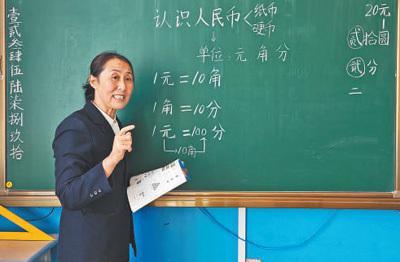 壹贰叁肆伍陆柒捌玖拾
认识人民币
纸币
硬币
单位：元 角 分
1元=10角
1角=10分
1元=100分
10角
20元
贰拾圆
贰分
二